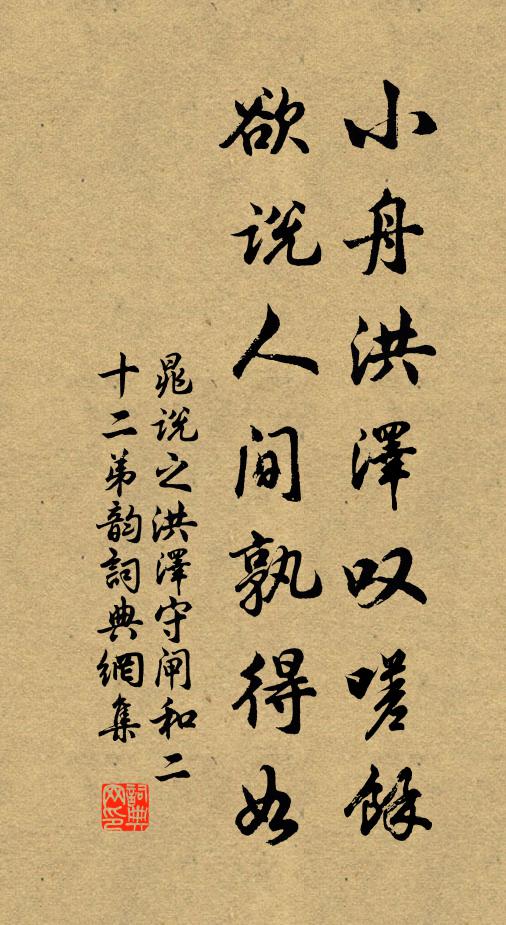 小舟洪澤叹嗟餘
欲说人间孰得如
晁说之洪澤守闸和二
十二弟韵詞典網集
詞典网印